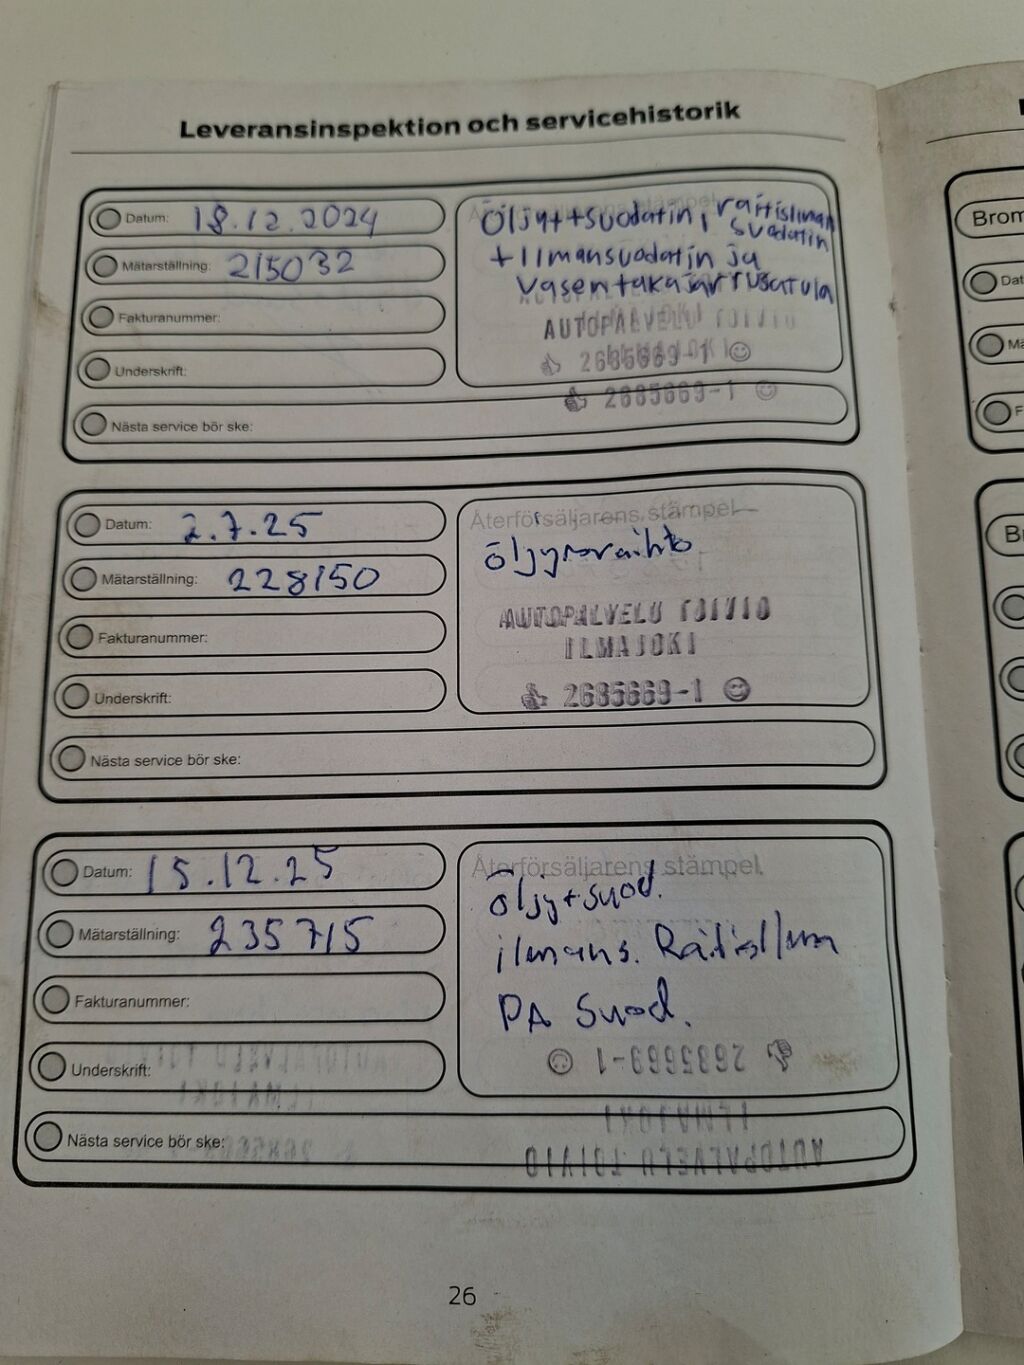 Leveransinspektion och servicehistorik
Datum: 18.12.2024
Mätarställning: 215032
Fakturanummer:
Underskrift:
Nästa service bör ske:
Öljyt+suodatin, raitisilman
suodatin
+ilmansuodatin ja
vasen takajarrusatula
AUTOPALVELU TOIVIO
2685669-1
2685669-1
Datum: 2.7.25
Mätarställning: 228150
Fakturanummer:
Underskrift:
Nästa service bör ske:
Återförsäljarens stämpel
öljynvaihto
AUTOPALVELU TOIVIO
ILMAJOKI
2685669-1
Datum: 15.12.25
Mätarställning: 235715
Fakturanummer:
Underskrift:
Nästa service bör ske:
Återförsäljarens stämpel
öljy+suod.
ilmans. Raitisilma
PA suod.
2685669-1
ILMAJOKI
AUTOPALVELU TOIVIO
26
Brom
Dat
Mä
F
B